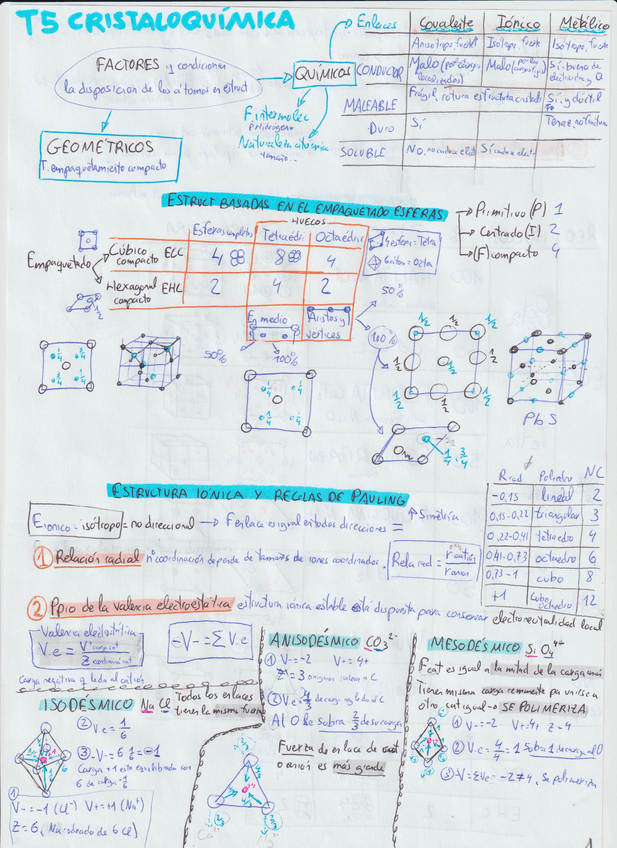 T5 CRISTALOQUÍMICA
FACTORES y condicionan
la disposición de los átomos en estruct
GEOMÉTRICOS
T. empaquetamiento compacto
QUÍMICOS
Enlaces
F intermolec
P. hidrógeno
Naturaleza atómica
tamaño...
Covalente Iónico Metálico
Anisotropo, fuerte Isótropo, fuerte Isótropo, fuerte
CONDUCTOR Malo Malo Sí: bueno de electricidad y Q
MALEABLE Frágil, rotura estructura cristal Sí, y dúctil
DURO Sí Tenaz, no fractura
SOLUBLE No
ESTRUCT BASADAS EN EL EMPAQUETADO ESFERAS
Primitivo (P) 1
Centrado (I) 2
(F) compacto 4
HUECOS
Esferas completas Tetraédri Octaédric
Empaquetado
Cúbico compacto ECC 4 8 4
Hexagonal compacto EHC 2 4 2
4 esferas = Tetra
6 sitios = Octa
En medio
Aristas y vértices
50%
100%
50%
100%
1/2 1/2
1/2 1/2
1/2 1/2
1/4 3/4
PbS
ESTRUCTURA IÓNICA Y REGLAS DE PAULING
E iónico = isótropo = no direccional → F enlace es igual en todas direcciones = ↑ Simetría
① Relación radial nº coordinación depende de tamaños de iones coordinados.
Rela rad = r catión / r anión
R rad Poliedro NC
-0,15 lineal 2
0,15-0,22 triangular 3
0,22-0,41 tetraedro 4
0,41-0,73 octaedro 6
0,73-1 cubo 8
+1 cuboctaedro 12
② Ppio de la valencia electrostática estructura iónica estable está dispuesta para conservar electroneutralidad local
Valencia electrostática
V.e =
-V- = Σ V.e
Carga negativa q llega al catión
ISODÉSMICO NaCl Todos los enlaces
tienen la misma fuerza
② V.e = 1/6
③ -V = 6·1/6 = -1
Carga +1 esta equilibrada con
6 de carga -1/6
①
V- = -1 (Cl⁻) V+ = +1 (Na⁺)
Z = 6, Na rodeado de 6 Cl)
ANISODÉSMICO CO₃²⁻
① V- = -2 V+ = 4+
Z = 3
② V.e = 4/3 de carga
Al O le sobra 2/3 de su carga
Fuerza de enlace de catión
O anión es más grande
MESODÉSMICO SiO₄⁴⁺
F cat es igual a la mitad de la carga anión
Tienen misma carga remanente pa unirse a
otro cat igual → SE POLIMERIZA
① V- = -2 V+ = 4+, Z = 4
② V.e = 4/4 = 1 Sobra 1 de carga al O
③ -V = ΣVe = -2 ≠ 4, Se polimeriza